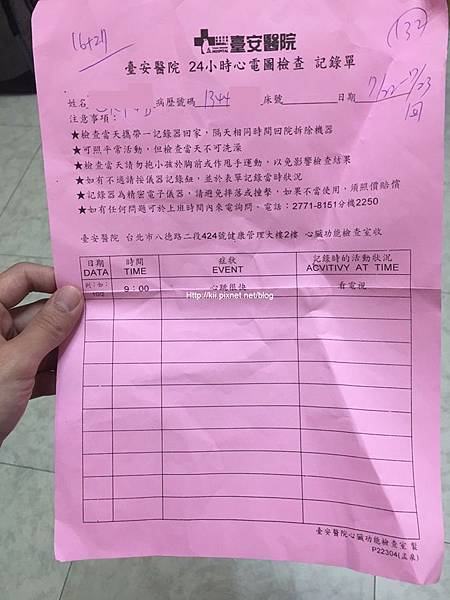 16+27
132
臺安醫院
臺安醫院 24小時心電圖檢查 記錄單
姓名 病歷號碼 1344 床號 日期 7/22-7/23
回
注意事項:
★檢查當天攜帶一記錄器回家,隔天相同時間回院拆除機器
★可照平常活動,但檢查當天不可洗澡
★檢查當天請勿抱小孩於胸前或作甩手運動,以免影響檢查結果
★如有不適請按儀器記錄鈕,並於表單記錄當時狀況
★記錄器為精密電子儀器,請避免摔落或撞擊,如果不當使用,須照價賠償
★如有任何問題可於上班時間內來電詢問。電話:2771-8151分機2250
臺安醫院 台北市八德路二段424號健康管理大樓2樓 心臟功能檢查室收
日期 時間 症狀 記錄時的活動狀況
DATA TIME EVENT ACVITIVY AT TIME
例:如:
10/2 9:00 心跳很快 看電視
Http://kii.pixnet.net/blog
臺安醫院心臟功能檢查室 製
P22304(孟泉)